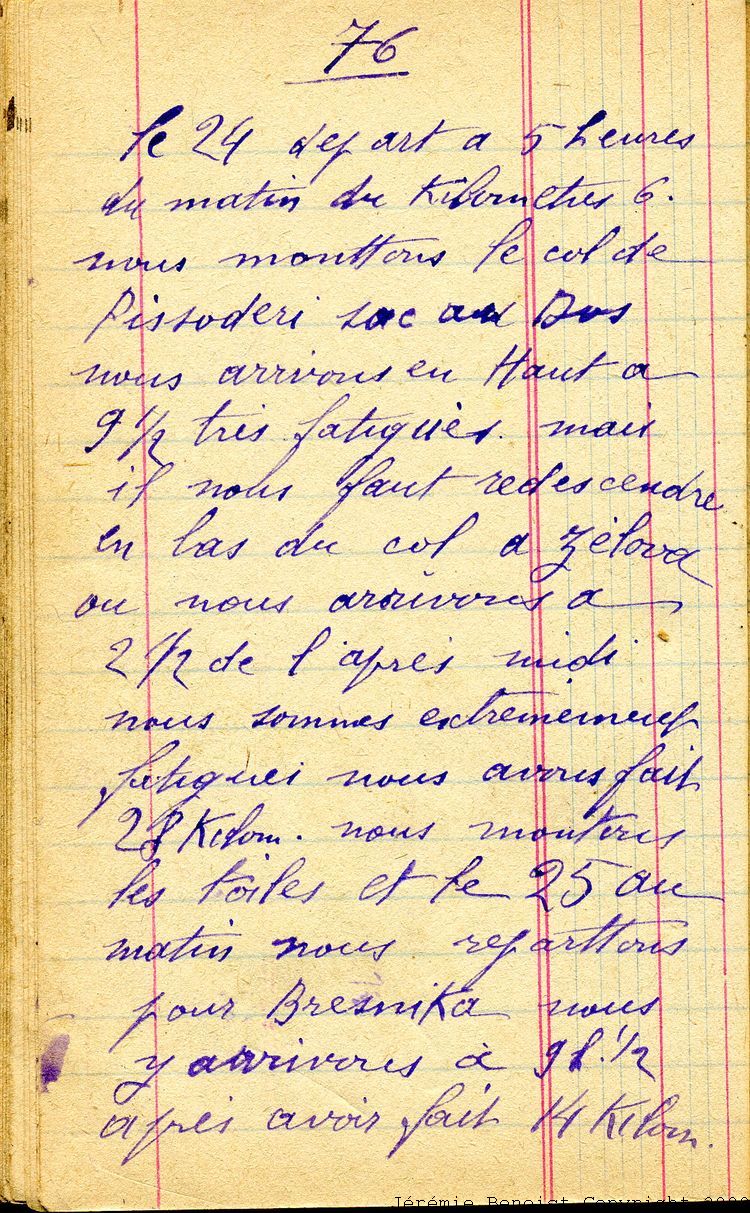 76
le 24 depart a 5 heures
du matin du Kilometres 6.
nous monttons le col de
Pissoderi sac au Dos
nous arrivons en Haut a
9 1/2 très fatigués. mais
il nous faut redescendre
en bas du col a Zélova
ou nous arrivons a
2 1/2 de l'après midi
nous sommes extremement
fatigués nous avons fait
28 Kilom. nous montons
les toiles et le 25 au
matin nous reparttons
pour Bresnika nous
y arrivons à 9h.1/2
après avoir fait 14 Kilom.
Jérémie Benoist Copyright